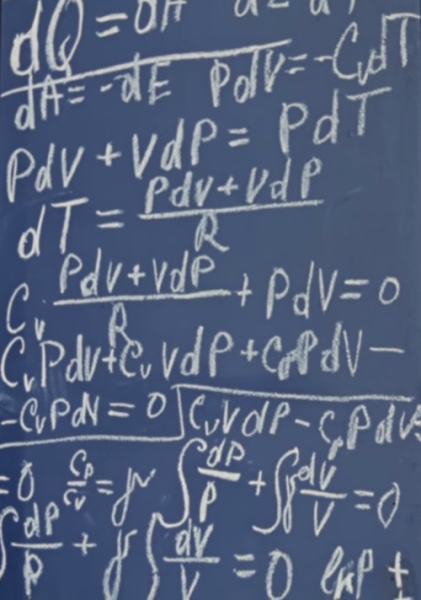 dQ = dA
dA = -dE   PdV = -CvdT
PdV + VdP = PdT
dT = PdV + VdP / R
Cv PdV + VdP / R + PdV = 0
CvPdV + CvVdP + CpPdV -
-CvPdV = 0   CvVdP - CpPdV
= 0   Cp/Cv = γ   ∫ dP/P + ∫γ dV/V = 0
∫ dP/P + γ ∫ dV/V = 0   lnP +